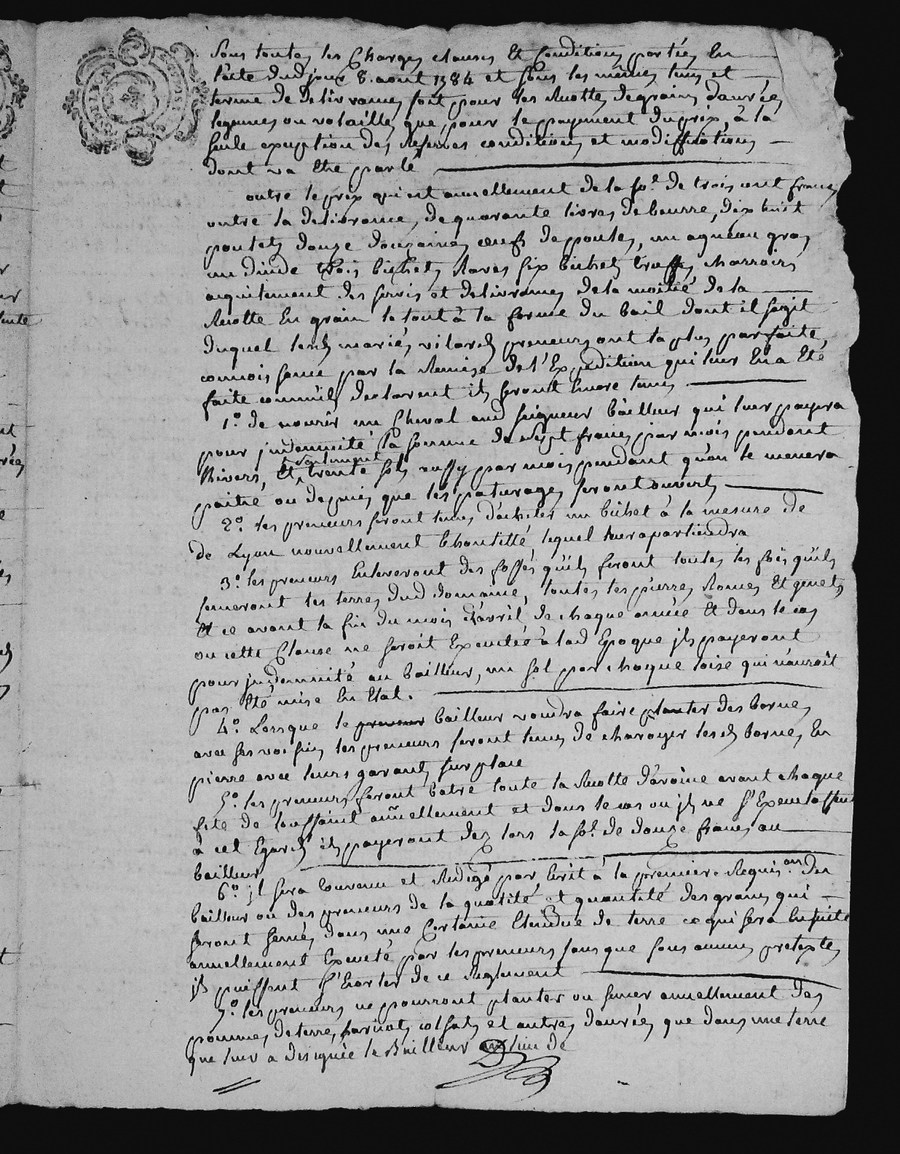 sous toutes les Charges clauses Et Conditions portées En
l'acte dud jour 8. aout 1784 et sous les mêmes tems et
terme de delivrances soit pour les Recolte de grains danrées
legumes ou volailles que pour le payement du prix, à la
seule exeption des Reserves conditions et modiffications
dont va etre parlé
outre le prix qui est annuellement de la so.e de trois cent francs
outre la delivrance, de quarante livres de beurre, dix huit
poulets douze douzaines œufs de poules, un agneau gras
un dinde trois bichets Raves six bichets truffes charrois
aquitement des servis et delivrances de la moitié de la
Recolte En grain le tout à la forme du bail dont il sagit
duquel lesd mariés vilard preneurs ont la plus parfaite,
connoissance par la Remise de l'Expedition qui leur En a Eté
faite comm'ils declarent ils seront Encore tenus
1.° de nourir un Cheval aud seigneur bailleur qui leur payera
pour jndemnité la somme de sept francs par mois pendant
lhivers, Et seulement trente sols aussy par mois pendant qu'on le menera
paitre ou depuis que les paturages seront ouverts
2.° les preneurs seront tenus d'acheter un bichet à la mesure de
de Lyon nouvellement Echantillé lequel leur apartiendra
3.° les preneurs Enleveront des fossés qu'ils feront toutes les fois qu'ils
semeront les terres dud domaine, toutes les pierres Ronces Et genets,
Et ce avant la fin du mois d'avril de chaque année Et dans le cas
ou cette Clause ne seroit Executée à lad Epoque jls payeront
pour jndemnité au bailleur, un sol par chaque toise qui n'auroit
pas Eté mise En Etat.
4.° Lorsque le preneur bailleur voudra faire planter des bornes
avec ses voisins, les preneurs seront tenus de charoyer lesd bornes, En
pierre avec leurs garants sur place
5.° les preneurs feront batre toute la Recolte d'avoine avant chaque
fete de toussaint annuellement et dans le cas ou jls ne s'Executassent
à cet Egard ils payeront dez lors la so.e de douze francs au
bailleur
6.° jl sera Convenu et Redigé par Ecrit à la premiere Requis.on du
bailleur ou des preneurs de la qualité et quantité des grains qui
seront semés dans une Certaine Etendue de terre ce qui sera Ensuite
annuellement Executé par les preneurs sans que sous aucuns pretextes
jls puissent s'Ecarter de ce Reglement
7.° les preneurs ne pourront planter ou semer annuellement des
pommes de terre, haricots colsats et autres danrées que dans une terre
que leur a designée le Bailleur au lieu de